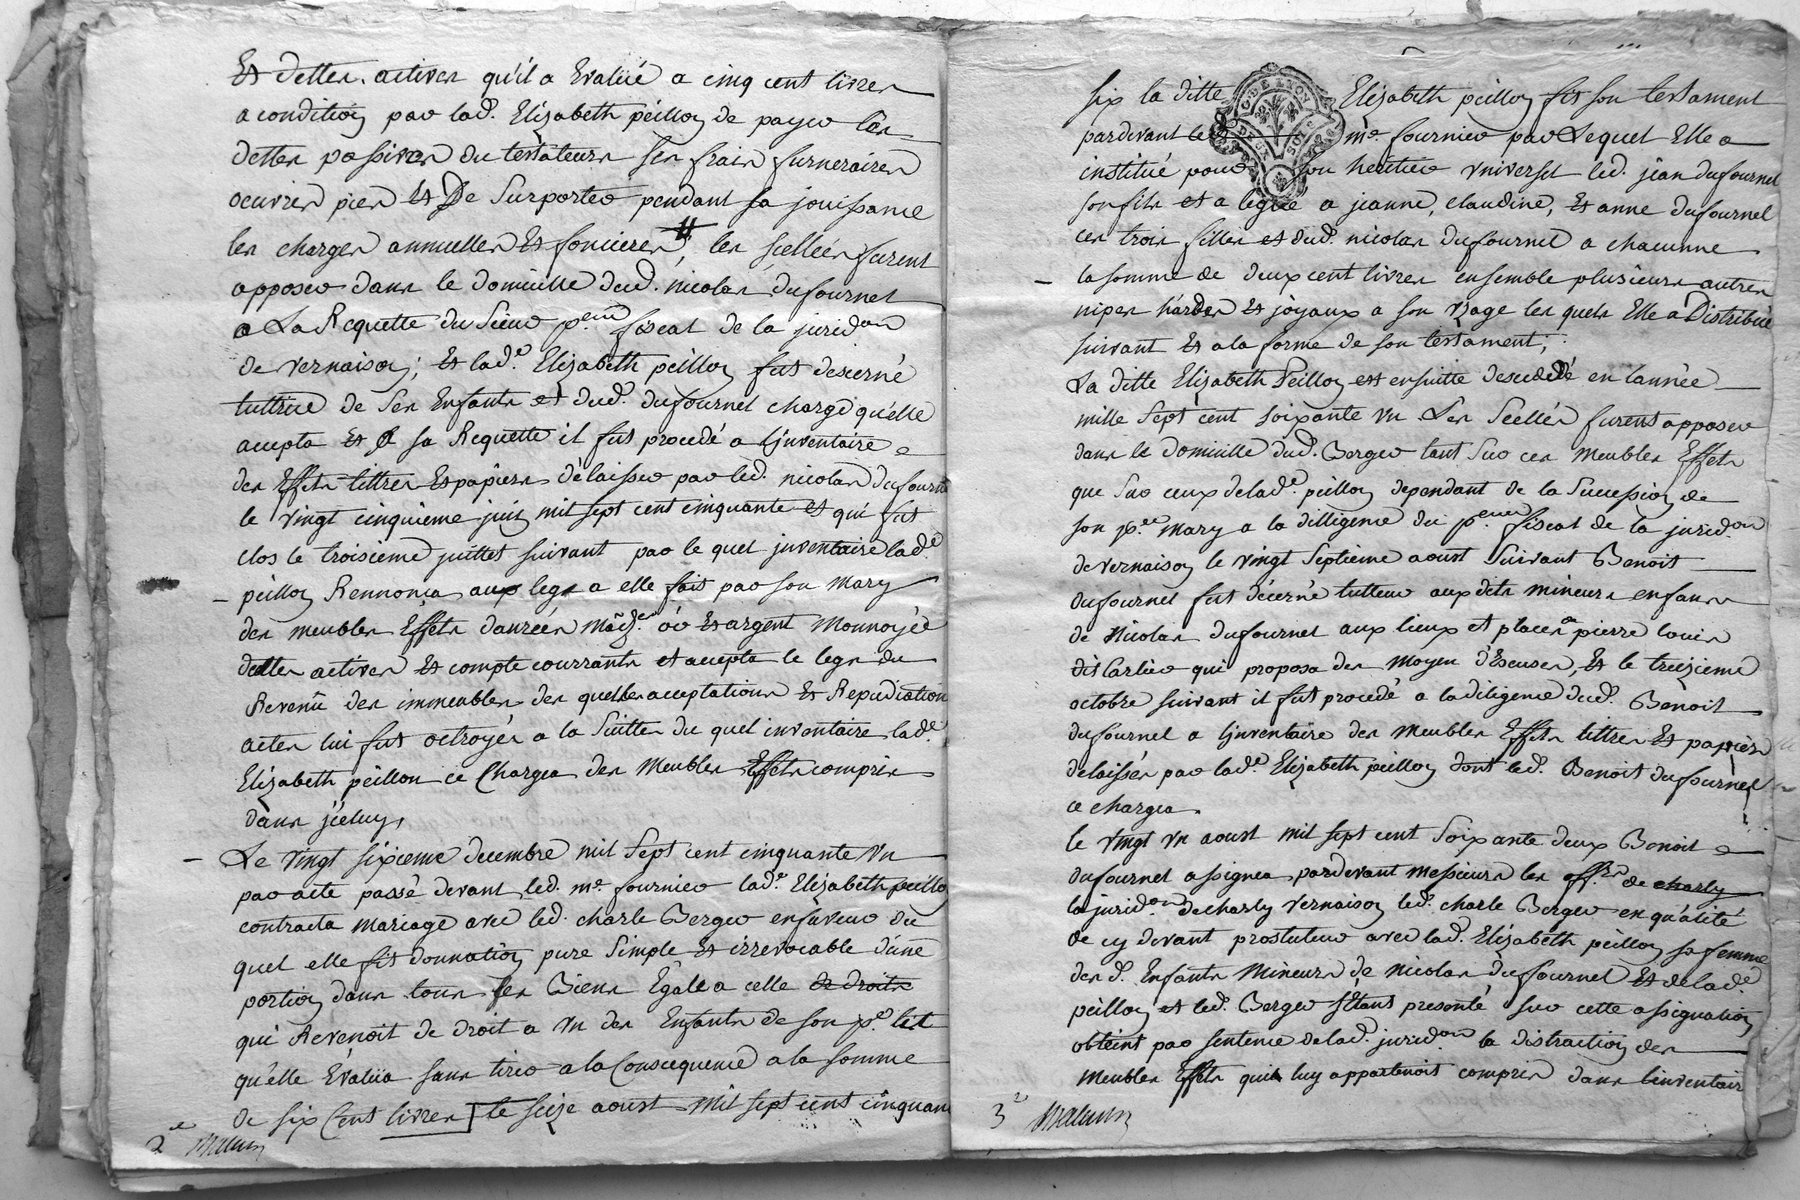 Et dettes actives qu'il a Evalüé a cinq cent livres
a condition par lad. Elizabeth péillon de payer les
dettes passives du testateurs ses frais furneraires
oeuvres pies Et De Surporter pendant sa jouissance
les charges annuelles Et foncieres, les scellées furent
apposer dans le domicille dud. nicolas dufournel
a La Requette du Sieur p.eur fiscal de la jurid.on
de vernaison; Et lad.e Elizabeth péillon fut descerné
tuttrice de Ses Enfants et dud. dufournel charge qu'elle
accepta Et a sa Requette il fut procedé a l'jnventaire
des Effets tittres Et papiers délaisser par led. nicolas dufournel
le vingt cinquieme juin mil sept cent cinquante et qui fut
clos le troisieme juillet suivant par le quel jnventaire lad.e
péillon Rennonça aux legs a elle fait par son mary
des meubles Effets danrées march.es or Et argent Monnoyée
dettes actives Et compte courrants et accepta le legs du
Revenû des immeubles des quelles acceptations Et Repudiation
actes lui fut octroyés a la Suitte du quel inventaire lad.e
Elizabeth péillon ce Chargea des Meubles Effets compris
dans jcéluy,
Le vingt sixieme decembre mil Sept cent cinquante vn
par acte passé devant led. me. fournier lad.e Elizabeth peillon
contracta mariage avec led. charle Berger en faveur du
quel elle fit donnation pure Simple Et irrevocable d'une
portion dans tous ses Biens Egale a celle de droits
qui Revenoit de droit a vn des Enfants de son p.er lit
qu'elle Evalüa sans tirer a la Consequence a la somme
de six Cents livres le seize aoust Mil sept cent cinquante
2.e
six la ditte Elizabeth peillon fit son testament
pardevant led. me. fournier par Lequel Elle a
institué pour son heritier vniversel led. jean dufournel
son fils et a legué a jeanne, claudine, Et anne dufournel
ces trois filles et dud. nicolas dufournel a chacunne
la somme de deux cent livres ensemble plusieurs autres
nipes hardes Et joyaux a son vsage les quels Elle a Distribüé
suivant Et a la forme de son testament;
La ditte Elizabeth Peillon est ensuitte descedédé en l'année
mille Sept cent soixante vn Les Scellés furent apposer
dans le domicille dud. Berger tant Sur ces Meubles Effets
que Sur ceux de lad.e peillon dependant de la Succession de
son p.er mary a la dilligence du p.eur fiscal de la jurid.on
de vernaison le vingt Septieme aoust Suivant Benoit
dufournel fut décerné tutteur aux dits mineurs enfants
de Nicolas dufournel aux lieux et places de pierre louis
dit Carlier qui proposa des Moyen d'Escuses, Et le treizieme
octobre suivant il fut procedé a la diligence dud. Benoit
dufournel a l'jnventaire des Meubles Effets tittres Et papiers
delaissés par lad.e Elizabeth peillon dont led. Benoit dufournel
ce chargea.
le vingt vn aoust mil sept cent Soixante deux Benoit
dufournel assignea pardevant Messieurs les off.rs de charly
la jurid.on De charly vernaison led. charle Berger en qualité
de cy devant protuteur avec lad. Elizabeth peillon sa femme
des d. Enfants Mineurs de nicolas dufournel Et de lad.e
peillon et led. Berger s'étant presenté sur cette assignation
obtint par sentence de lad. jurid.on la distraction des
Meubles Effets quil luy appartenoit compris dans linventair
3.e